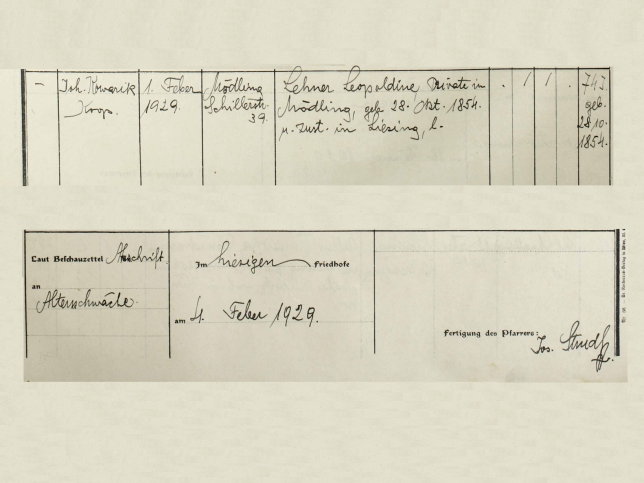 – Joh. Kowarik 1. Feber Mödling Lehner Leopoldine Private in . / / . 747.
Koop. 1929. Schillerstr. Mödling, geb. 28. Okt. 1854. geb.
39. u. zust. in Liesing, l. 28.10.
1854.
Laut Beschauzettel Abschrift.
an
Altersschwäche.
Im hiesigen Friedhofe
am 4. Feber 1929.
Fertigung des Pfarrers:
Jos.